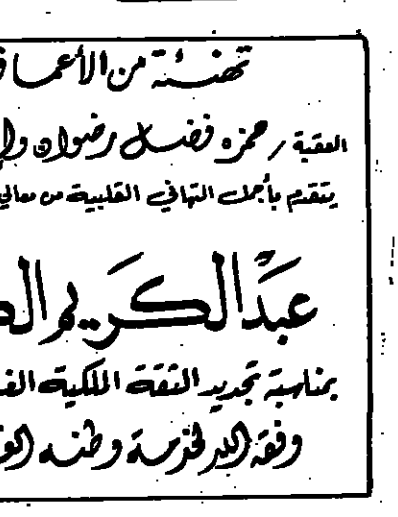 تهنئة من الأعماق
العقبة / حمزه فضل رضوان
يتقدم بأجمل التهاني القلبية من معالي
عبد الكريم
بمناسبة تجديد الثقة الملكية
وفقه الله لخدمة وطنه